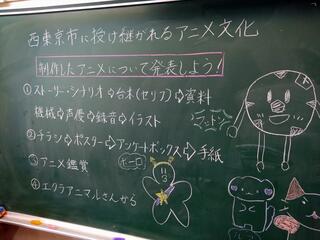 西東京市に授け継がれるアニメ文化
制作したアニメについて発表しよう!
①ストーリー・シナリオ⇨台本(セリフ)⇨資料
機械⇨声優⇨録音⇨イラスト
②チラシ⇨ポスター⇨アンケートボックス⇨手紙
③アニメ鑑賞
④エクラアニマルさんから